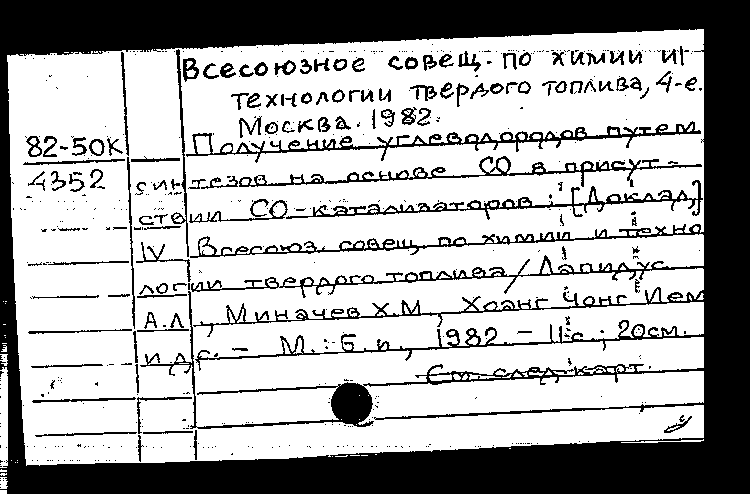 Всесоюзное совещ. по химии и
технологии твердого топлива, 4-е.
Москва. 1982.
82-50К Получение углеводородов путем
4352 синтезов на основе СО в присут-
ствии СО-катализаторов: [Доклад,]
IV Всесоюз. совещ. по химии и техно
логии твердого топлива / Лапидус
А.Л., Миначев Х.М., Хоанг Чонг Ием
и др. - М.: Б. и., 1982. - 11 с.; 20см.
См. след. карт.